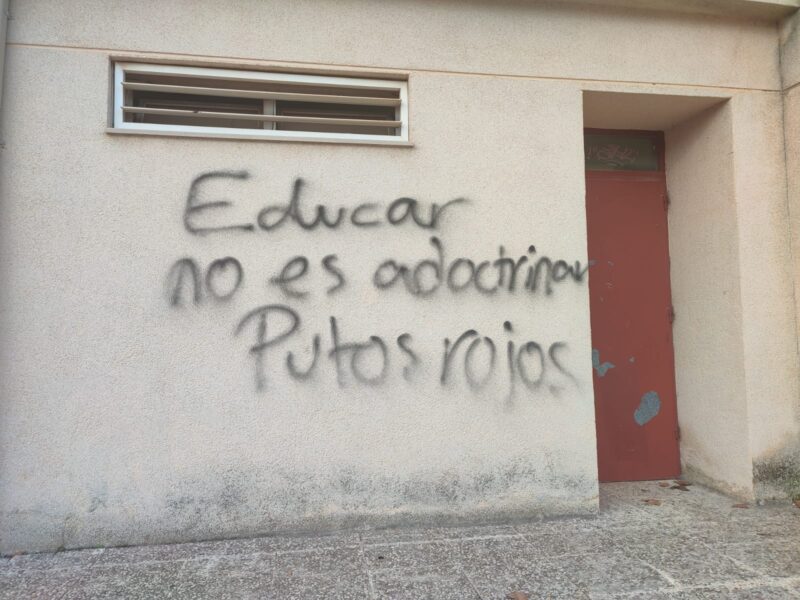 Educar
no es adoctrinar
Putos rojos